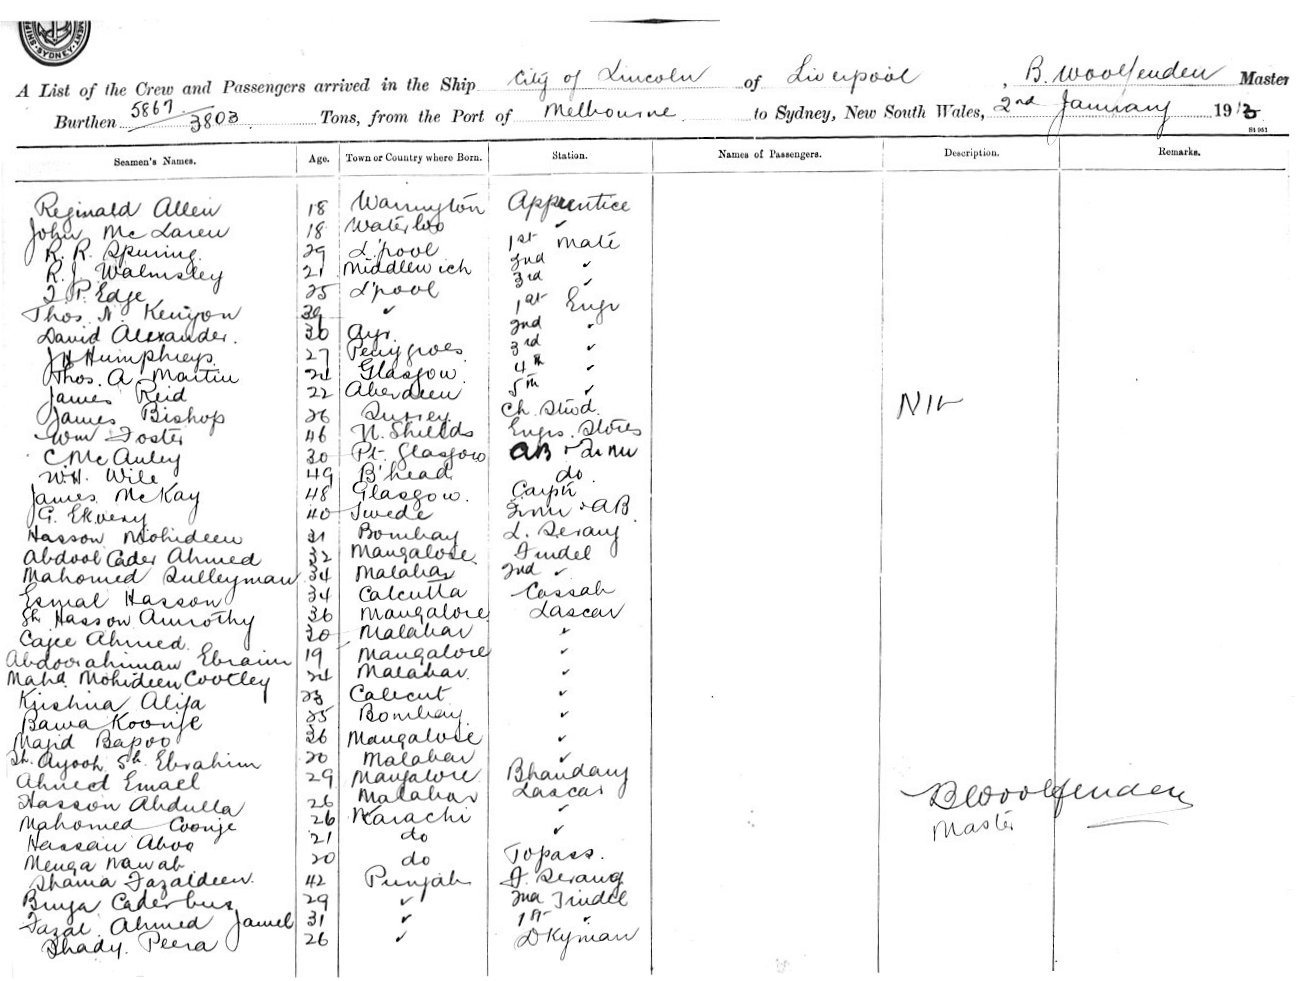 SYDNEY
A List of the Crew and Passengers arrived in the Ship City of Lincoln of Liverpool, B. Woolfenden Master
Burthen 5867/3803 Tons, from the Port of Melbourne to Sydney, New South Wales, 2nd January 1913
St 951
Seamen's Names. Age. Town or Country where Born. Station. Names of Passengers. Description. Remarks.
Reginald Allen 18 Warrington Apprentice
John McLaren 18 Waterloo ✓
R. R. Spuring 29 L'pool 1st Mate
R. J. Walmsley 21 Middlewich 2nd ✓
T. P. Edge 25 L'pool 3rd ✓
Thos. N. Kenyon 39 ✓ 1st Engr
David Alexander. 36 Ayr. 2nd ✓
J H Humphreys 27 Penygroes 3rd ✓
Thos. A. Martin 24 Glasgow 4th ✓
James Reid 22 Aberdeen 5th ✓
James Bishop 26 Surrey Ch. Stwd.
Wm Foster 46 N. Shields Engrs. Stores
C McAuley 30 Pt. Glasgow AB +
W.H. Wile 49 B'head do
James McKay 48 Glasgow. Carptr
G. 40 Swede + AB
Hasson Mohideen 31 Bombay L. Serang
Abdool Cader Ahmed 32 Mangalore Tindel
Mahomed Sulleyman 34 Malabar 2nd ✓
Esmal Hasson 34 Calcutta Cassab
Sk Hasson Amrothy 36 Mangalore Lascar
Cajee Ahmed. 20 Malabar ✓
Abdoorahiman Ebraim 19 Mangalore ✓
Mahd. Mohideen Cootley 24 Malabar ✓
Krishna Alija 23 Calecut ✓
Bawa Koonje 25 Bombay ✓
Majid Bapoo 36 Mangalore ✓
Sh. Ayooh Sh. Ebrahim 20 Malabar ✓
Ahmed Emael 29 Mangalore Bhandary
Hasson Abdulla 26 Malabar Lascar
Mahomed Coonje 26 Karachi ✓
Hassan Aboo 21 do ✓
Menga Nawab 20 do Topass.
Shama Fazaldeen. 42 Punjab F. Serang
Caderbux 29 ✓ 2nd Tindel
Fazal Ahmed Jamel 31 ✓ 1st ✓
Shady. Peera 26 ✓ Dkyman
Nil
B Woolfenden
Master